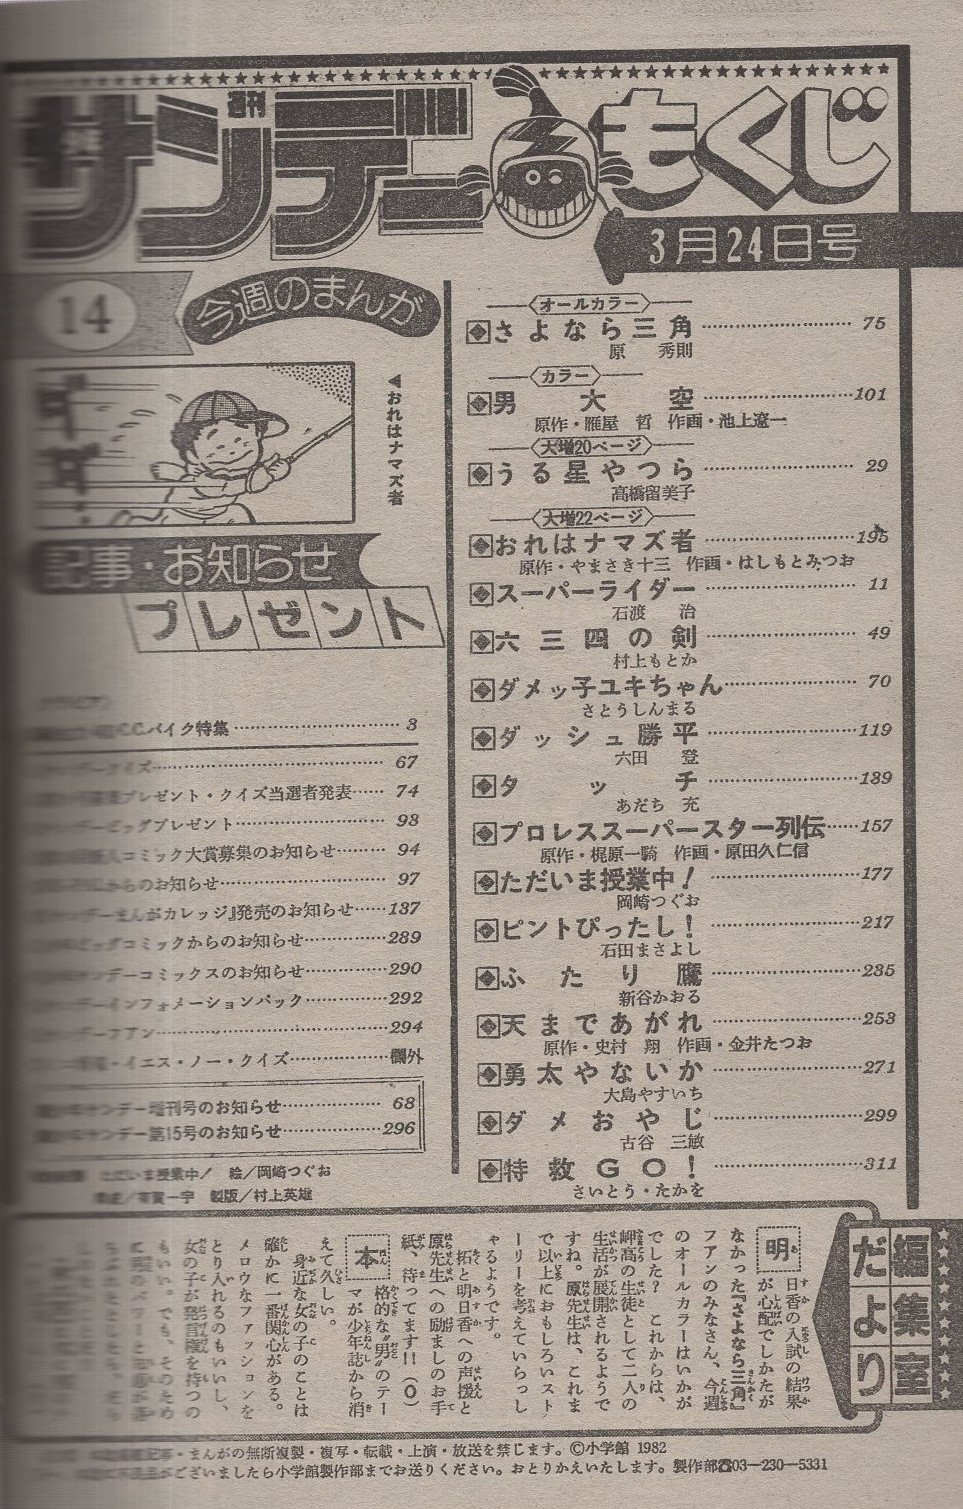 週刊
サンデー
もくじ
3月24日号
14
今週のまんが
◀おれはナマズ者
オールカラー
さよなら三角 75
原 秀則
カラー
男大空 101
原作・雁屋 哲 作画・池上遼一
大増20ページ
うる星やつら 29
高橋留美子
大増22ページ
おれはナマズ者 195
原作・やまさき十三 作画・はしもとみつお
スーパーライダー 11
石渡 治
六三四の剣 49
村上もとか
ダメッ子ユキちゃん 70
さとうしんまる
ダッシュ勝平 119
六田 登
タッチ 139
あだち 充
プロレススーパースター列伝 157
原作・梶原一騎 作画・原田久仁信
ただいま授業中! 177
岡崎つぐお
ピントぴったし! 217
石田まさよし
ふたり鷹 235
新谷かおる
天まであがれ 253
原作・史村 翔 作画・金井たつお
勇太やないか 271
大島やすいち
ダメおやじ 299
古谷 三敏
特救GO! 311
さいとう・たかを
記事・お知らせ
プレゼント
バイク特集 3
クイズ 67
プレゼント・クイズ当選者発表 74
ビッグプレゼント 93
コミック大賞募集のお知らせ 94
からのお知らせ 97
まんがカレッジ』発売のお知らせ 137
ビッグコミックからのお知らせ 289
サンデーコミックスのお知らせ 290
インフォメーションパック 292
フアン 294
イエス・ノー・クイズ 欄外
サンデー増刊号のお知らせ 68
サンデー第15号のお知らせ 296
ただいま授業中! 絵/岡崎つぐお
製版/村上英雄
編集室
だより
明日香の入試の結果
が心配でしかたが
なかった『さよなら三角』
フアンのみなさん、今週
のオールカラーはいかが
でした? これからは、
岬高の生徒として二人の
生活が展開されるようで
すね。原先生は、これま
で以上におもしろいスト
ーリーを考えていらっし
ゃるようです。
拓と明日香への声援と
原先生への励ましのお手
紙、待ってます!!(O)
本格的な"男"のテー
マが少年誌から消
えて久しい。
身近な女の子のことは
確かに一番関心がある。
メロウなファッションを
とり入れるのもいいし、
女の子が発言権を持つの
もいい。でも、そのため
まんがの無断複製・複写・転載・上演・放送を禁じます。©小学館 1982
がございましたら小学館製作部までお送りください。おとりかえいたします。製作部☎03-230-5331